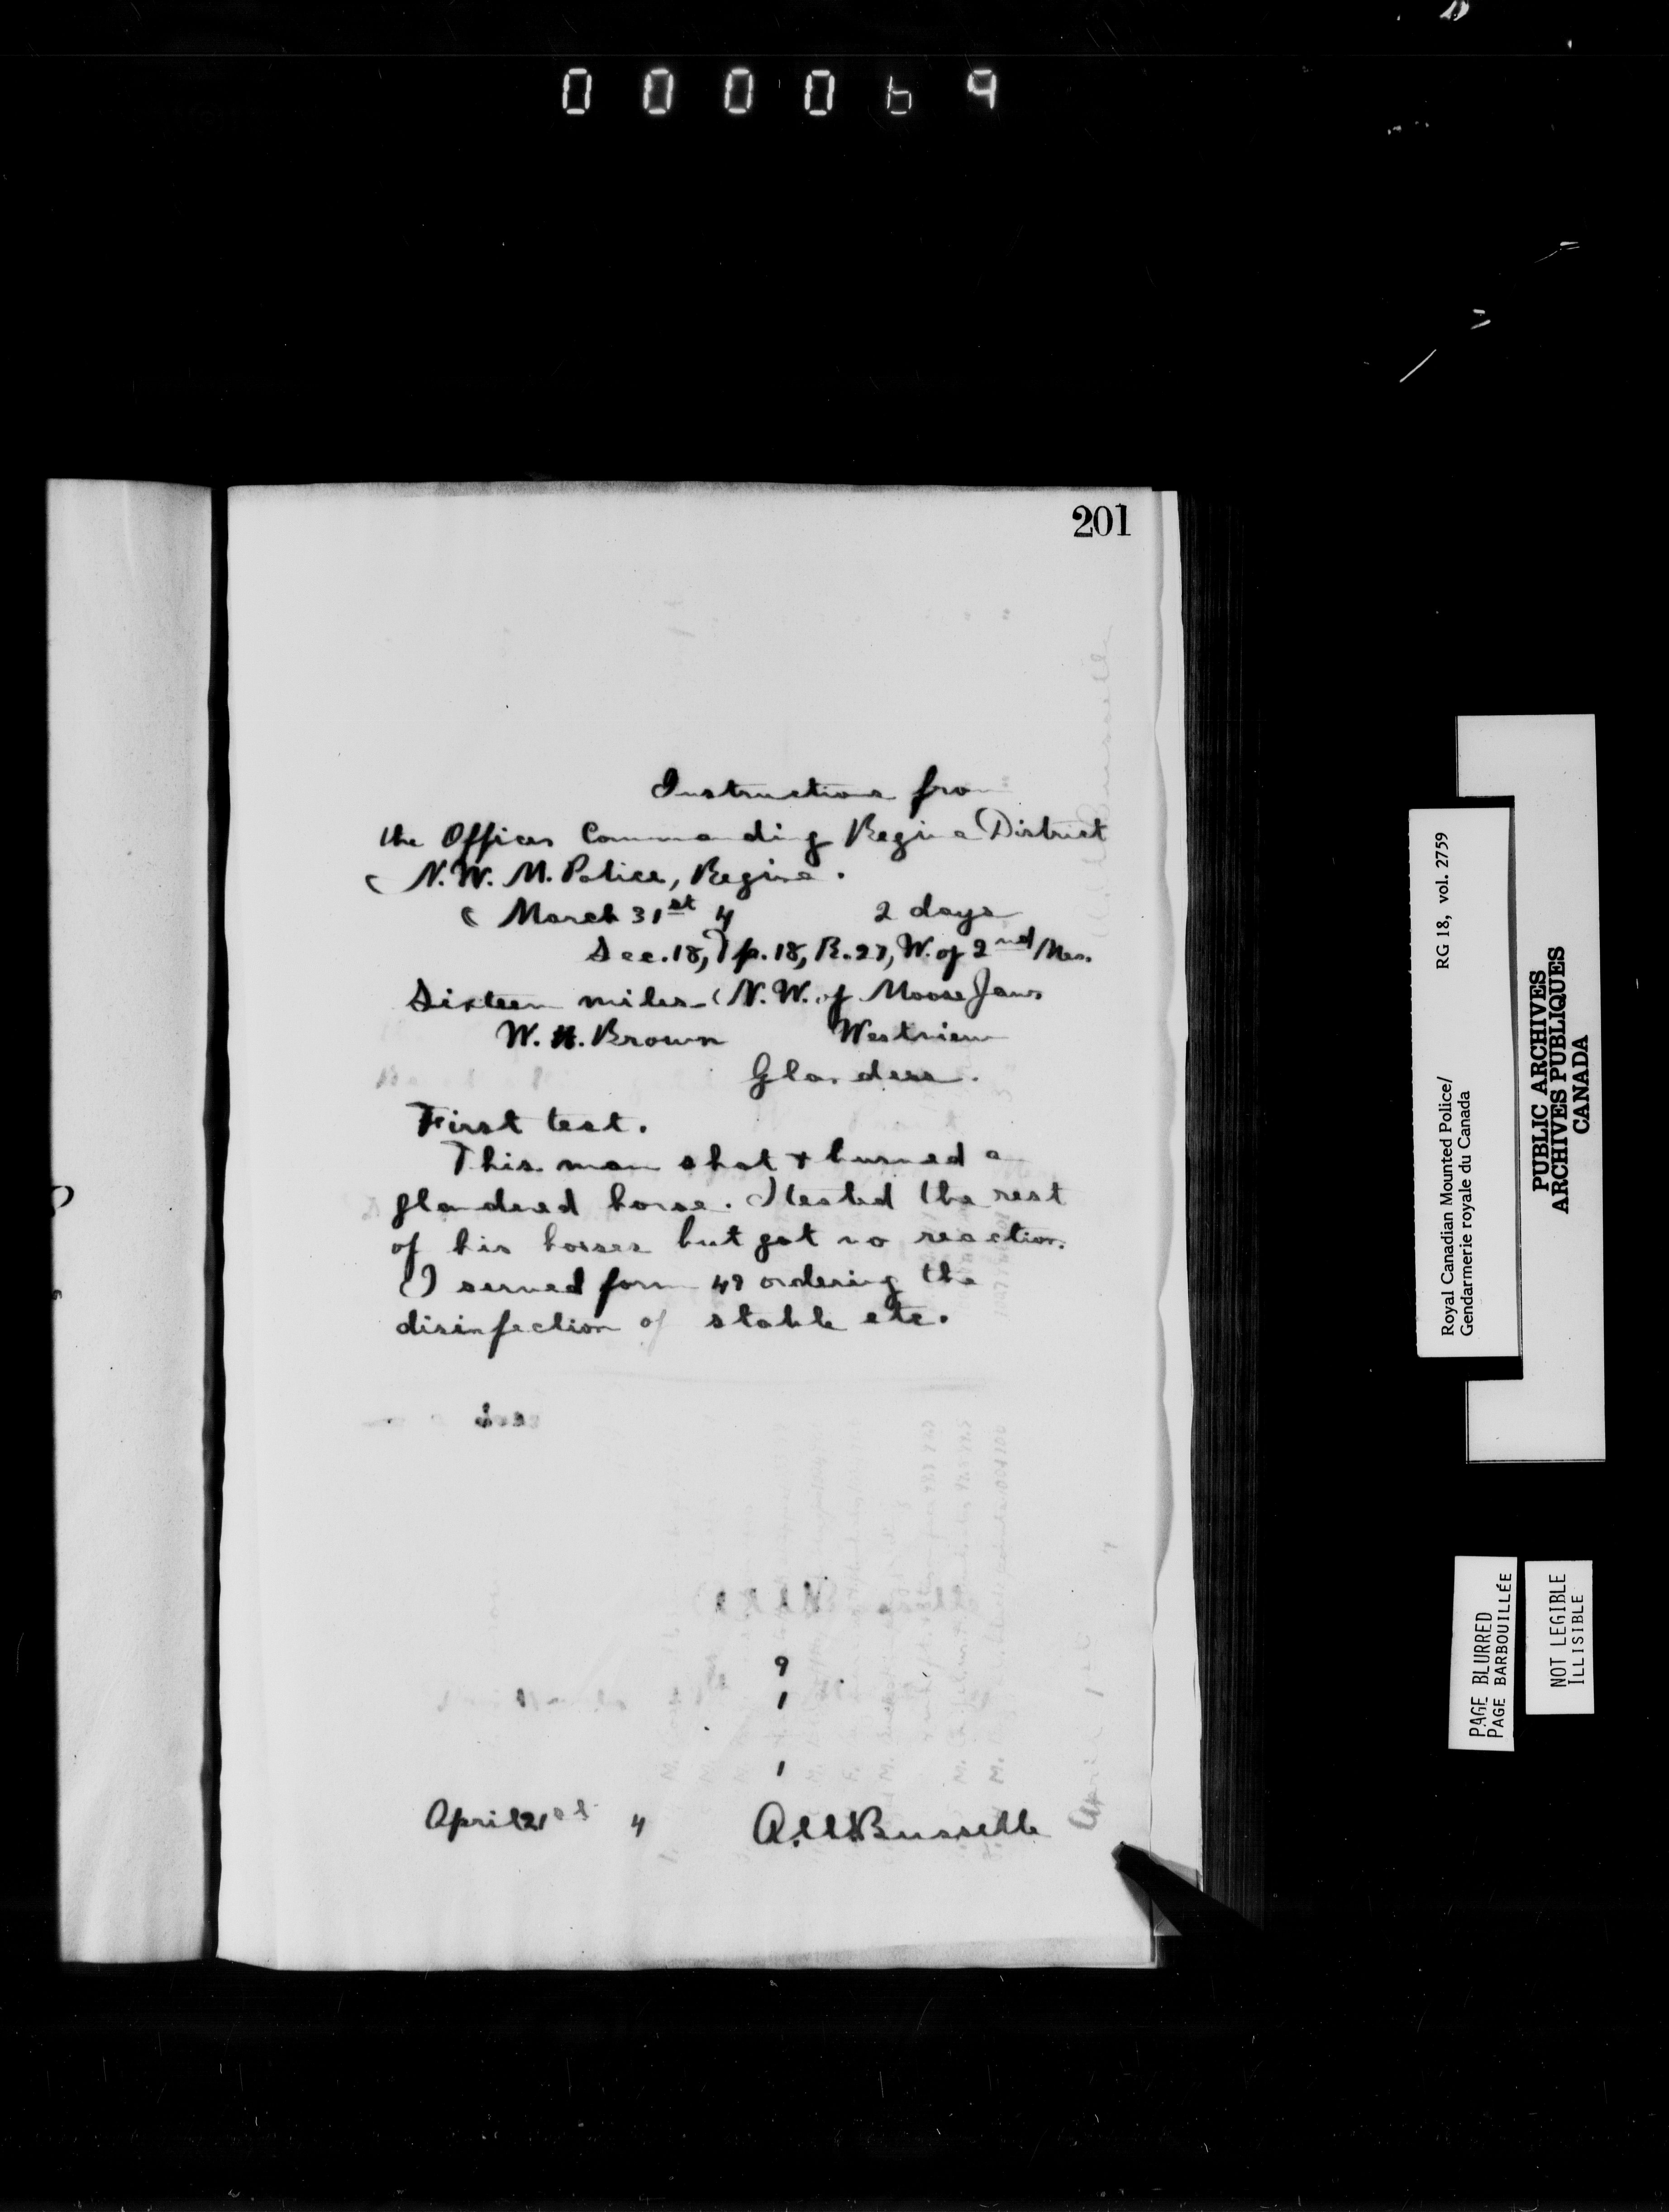 000069
201
Instructions from
the Officer Commanding Regina District
N. W. M. Police, Regina.
March 31st 4 2 days
Sec. 18, Tp. 18, R. 27, W. of 2nd Mer.
Sixteen miles N. W. of Moose Jaw
W. H. Brown Westview
Glanders.
First test.
This man shot + burned a
glandered horse. I tested the rest
of his horses but got no reaction.
I served form 49 ordering the
disinfection of stable etc.
9
1
1
April 21st 4
Royal Canadian Mounted Police/ RG 18, vol. 2759
Gendarmerie royale du Canada
PUBLIC ARCHIVES
ARCHIVES PUBLIQUES
CANADA
PAGE BLURRED
PAGE BARBOUILLÉE
NOT LEGIBLE
ILLISIBLE